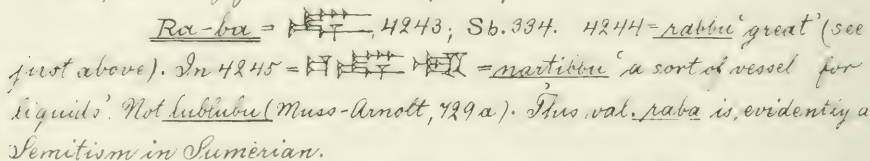 Ra-ba = 4243; Sb. 334. 4244 = rabbu 'great' (see
just above). In 4245 = = nartibbu 'a sort of vessel for
liquids'. Not lublubu (Muss-Arnolt, 729 a). This val. raba is, evidently a
Semitism in Sumerian.